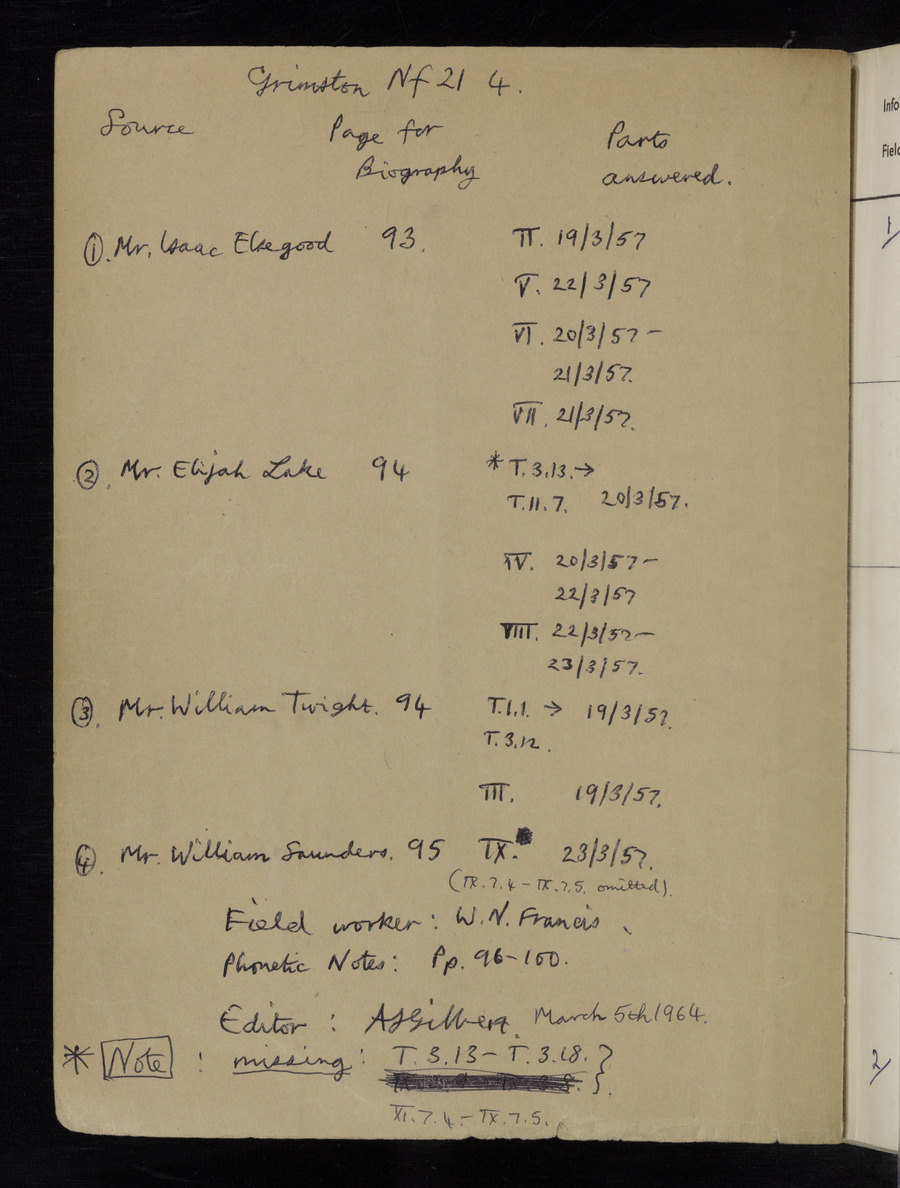 Grimston Nf 21 4.
Source Page for Parts
Biography answered.
① Mr. Isaac Elsegood 93. II. 19/3/57
V. 22/3/57
VI. 20/3/57 –
21/3/57.
VII. 21/3/57.
② Mr. Elijah Lake 94 * T.3.13. →
T.11.7. 20/3/57.
IV. 20/3/57 –
22/3/57
VIII. 22/3/57 –
23/3/57.
③ Mr. William Twight. 94 T.1.1. → 19/3/57.
T.3.12.
III. 19/3/57.
④ Mr. William Saunders. 95 IX. 23/3/57.
(IX.7.4 – IX.7.5. omitted).
Field worker: W.N. Francis.
Phonetic Notes: Pp. 96–100.
Editor : ASGilbert. March 5th 1964.
* Note : missing : T.3.13 – T.3.18. }
XI.7.4 – IX.7.5.
Info
Field
1/
2/